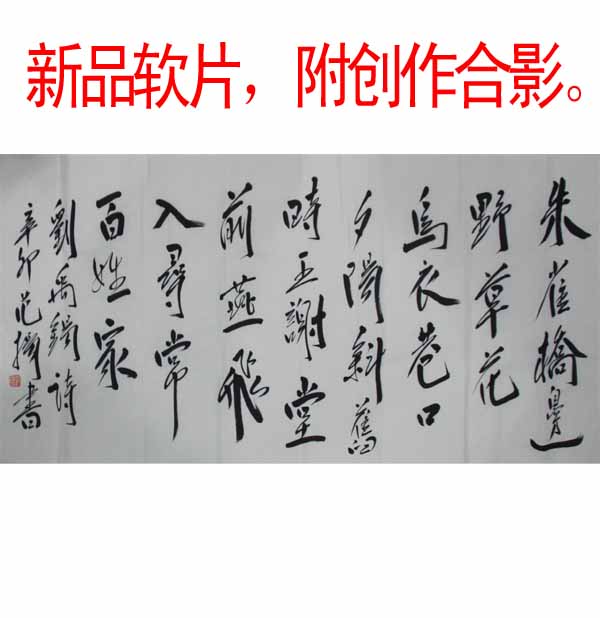 新品软片，附创作合影。
朱雀橋邊
野草花
烏衣巷口
夕陽斜舊
時王謝堂
前燕飛
入尋常
百姓家
劉禹錫詩
辛卯范書